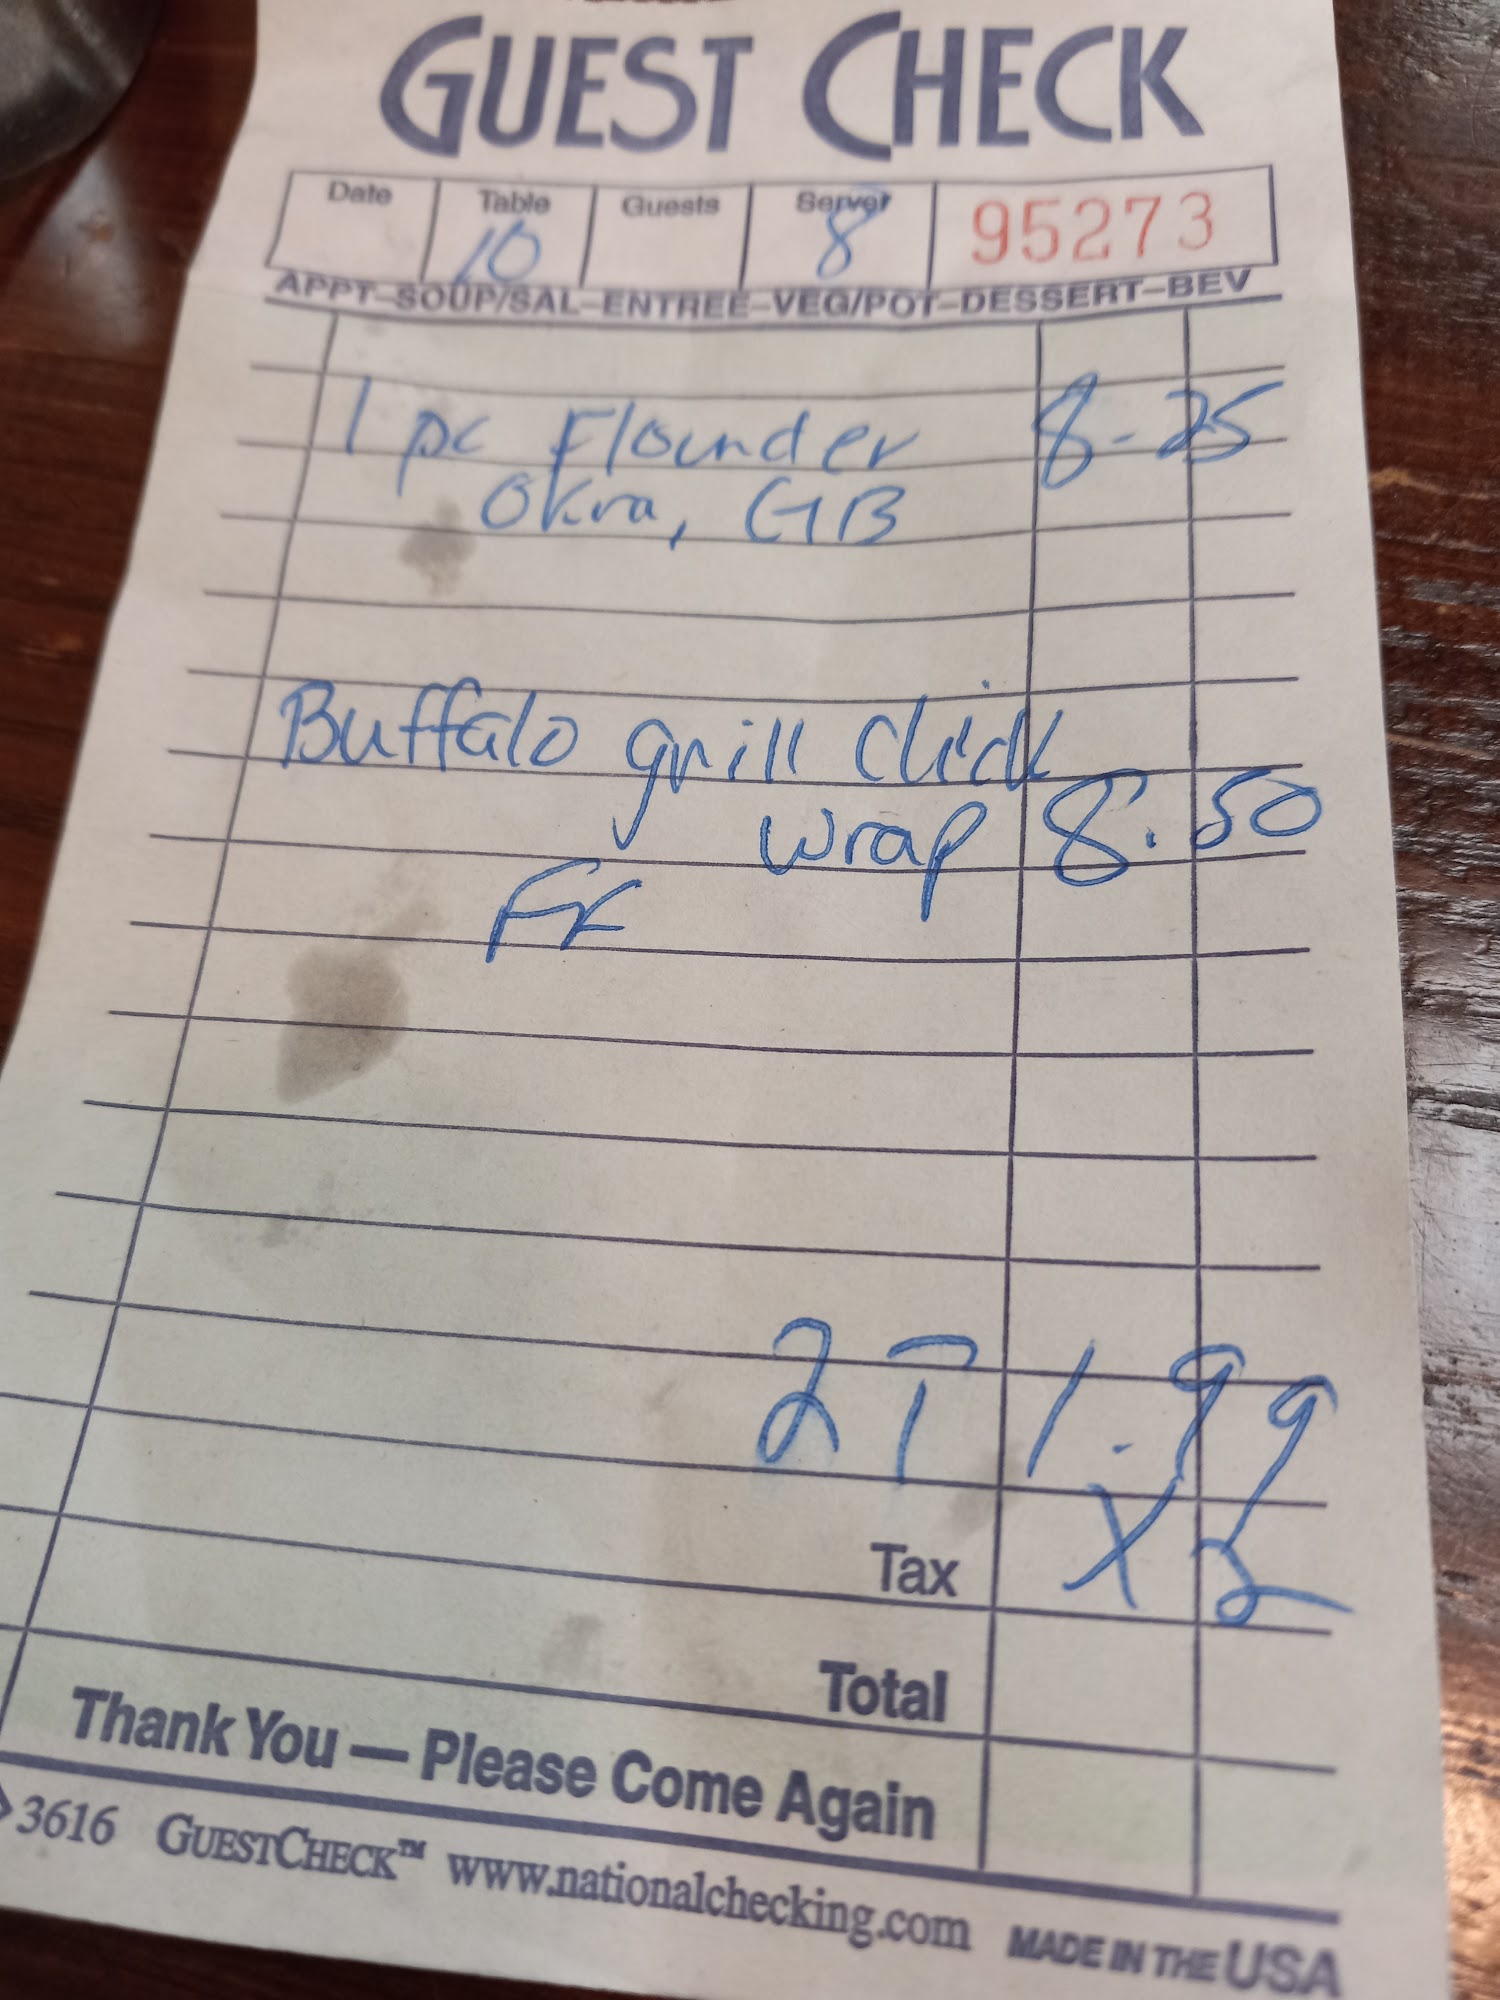 GUEST CHECK
Date Table Guests Server 95273
10 8
APPT-SOUP/SAL-ENTREE-VEG/POT-DESSERT-BEV
1 pc Flounder 8-25
Okra, GB
Buffalo grill Chick
wrap 8.50
FF
2 T 1.99
x 2
Tax
Total
Thank You — Please Come Again
3616 GUESTCHECK™ www.nationalchecking.com MADE IN THE USA